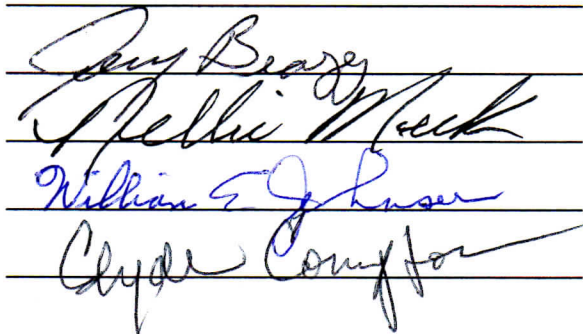 Jerry Beazey
Nellie Meek
William E Johnson
Clyde Compton